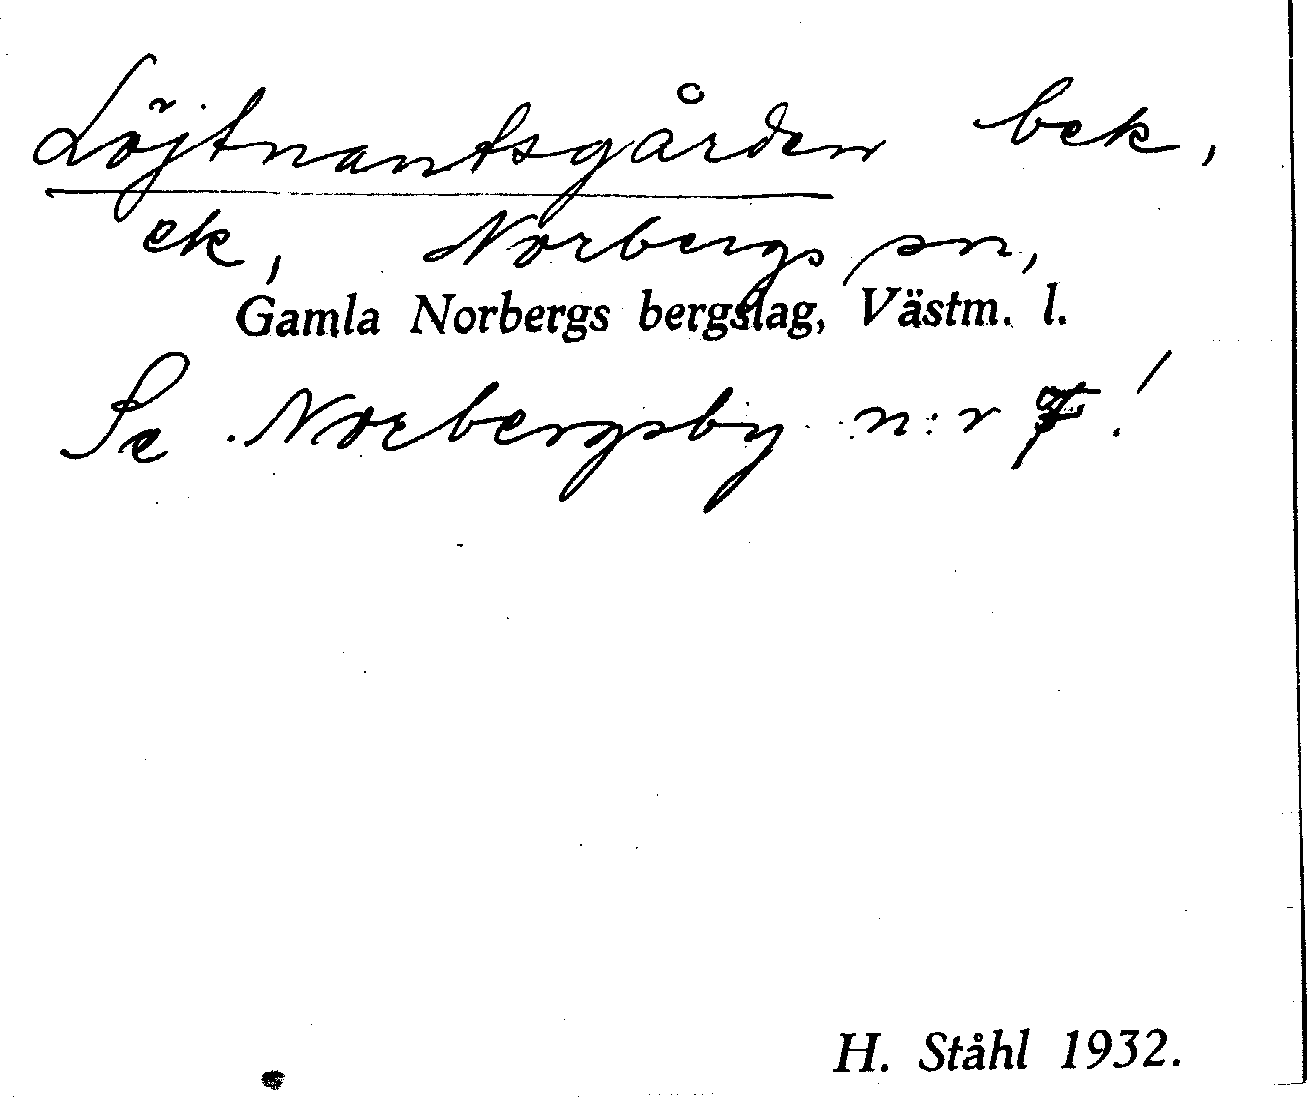 Löjtnantsgården bek,
ek, Norbergs sn,
Gamla Norbergs bergslag, Västm. l.
Se Norbergsby n:r 7!
H. Ståhl 1932.